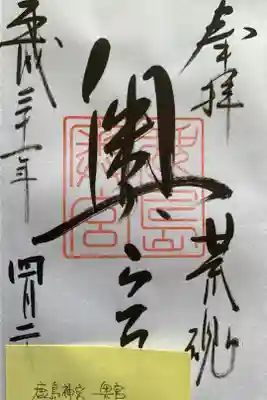 奉拝
荒魂
奥宮
平成三十一年
四月二
鹿島神宮 奥宮